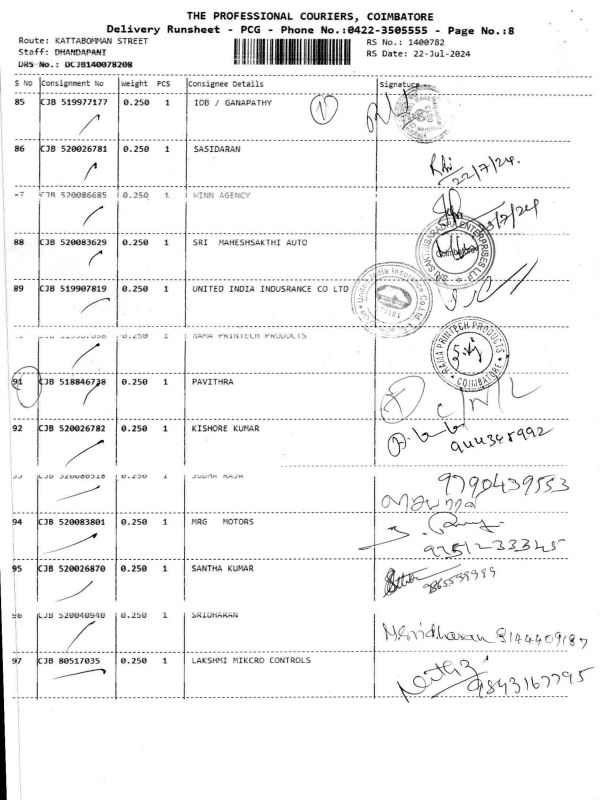 THE PROFESSIONAL COURIERS, COIMBATORE
Delivery Runsheet - PCG - Phone No.:0422-3505555 - Page No.:8
Route: KATTABOMMAN STREET RS No.: 1400782
Staff: DHANDAPANI RS Date: 22-Jul-2024
DRS No.: DCJB140078208
S No Consignment No Weight PCS Consignee Details Signature
85 CJB 519977177 0.250 1 IOB / GANAPATHY 1
86 CJB 520026781 0.250 1 SASIDARAN
22/7/24.
CJB 520086685 0.250 1 WINN AGENCY
/7/24
SRI SAKTHISARADHA ENTERPRISES LLP
Coimbatore
88 CJB 520083629 0.250 1 SRI MAHESHSAKTHI AUTO
89 CJB 519907819 0.250 1 UNITED INDIA INDUSRANCE CO LTD
United India Insurance Co. Ltd
0.250 1 RAMA PRINTECH PRODUCTS
RAMA PRINTECH PRODUCTS
COIMBATORE
91 CJB 518846738 0.250 1 PAVITHRA
92 CJB 520026782 0.250 1 KISHORE KUMAR
CJB 520086518 0.250 1 SUDHA RAJA
9790439553
94 CJB 520083801 0.250 1 MRG MOTORS
95 CJB 520026870 0.250 1 SANTHA KUMAR
96 CJB 520040940 0.250 1 SRIDHARAN
MSridharan 8144409187
97 CJB 80517035 0.250 1 LAKSHMI MIKCRO CONTROLS
9843167795